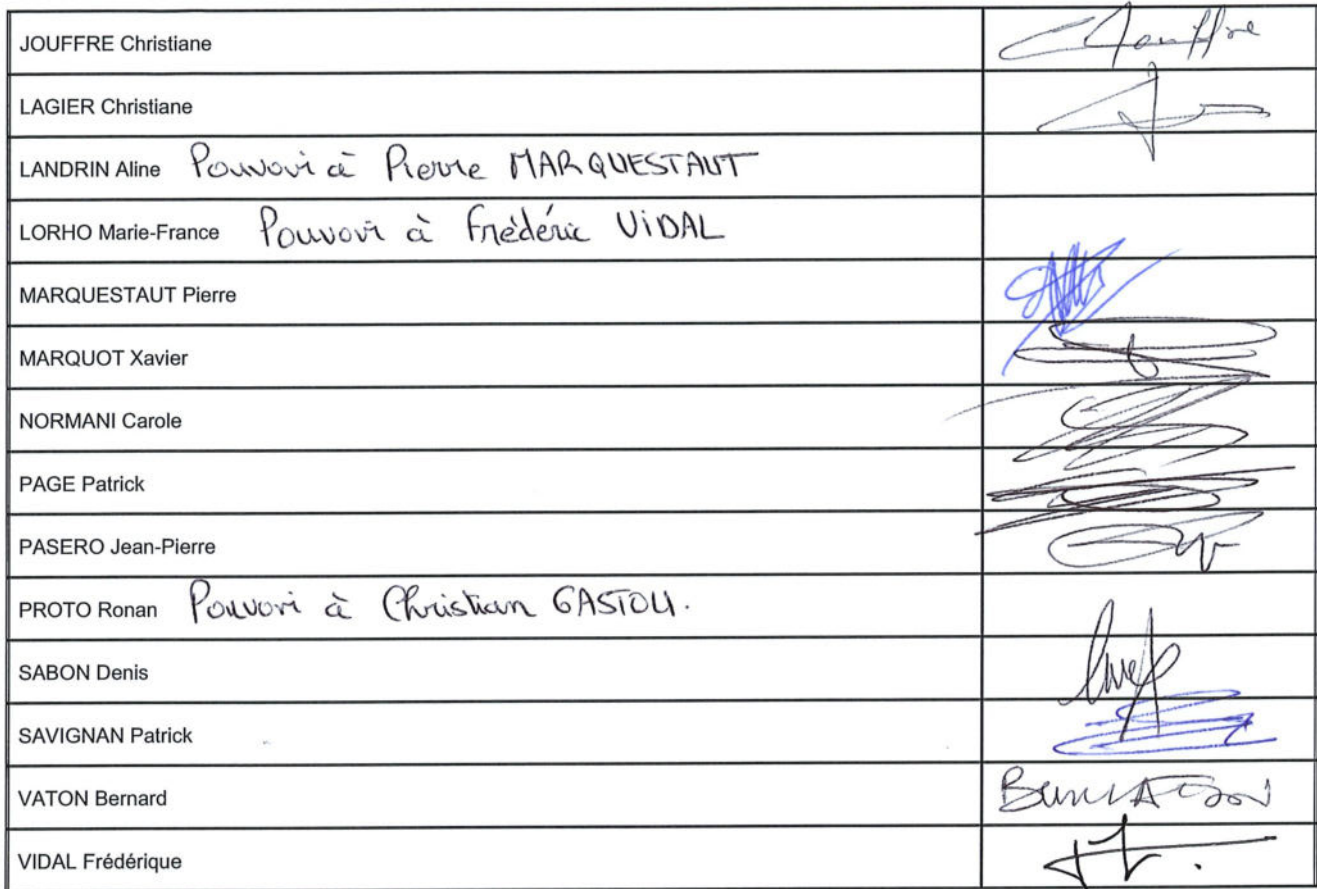 JOUFFRE Christiane Jouffre
LAGIER Christiane
LANDRIN Aline Pouvoir à Pierre MARQUESTAUT
LORHO Marie-France Pouvoir à Frédéric VIDAL
MARQUESTAUT Pierre
MARQUOT Xavier
NORMANI Carole
PAGE Patrick
PASERO Jean-Pierre
PROTO Ronan Pouvoir à Christian GASTOU.
SABON Denis
SAVIGNAN Patrick
VATON Bernard
VIDAL Frédérique